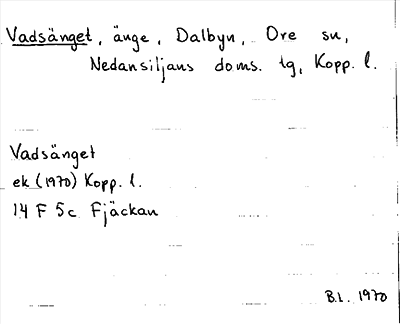 Vadsänget, änge, Dalbyn, Ore sn,
Nedansiljans doms. tg, Kopp. l.
Vadsänget
ek (1970) Kopp. l.
14 F 5c Fjäckan
B.L. 1970